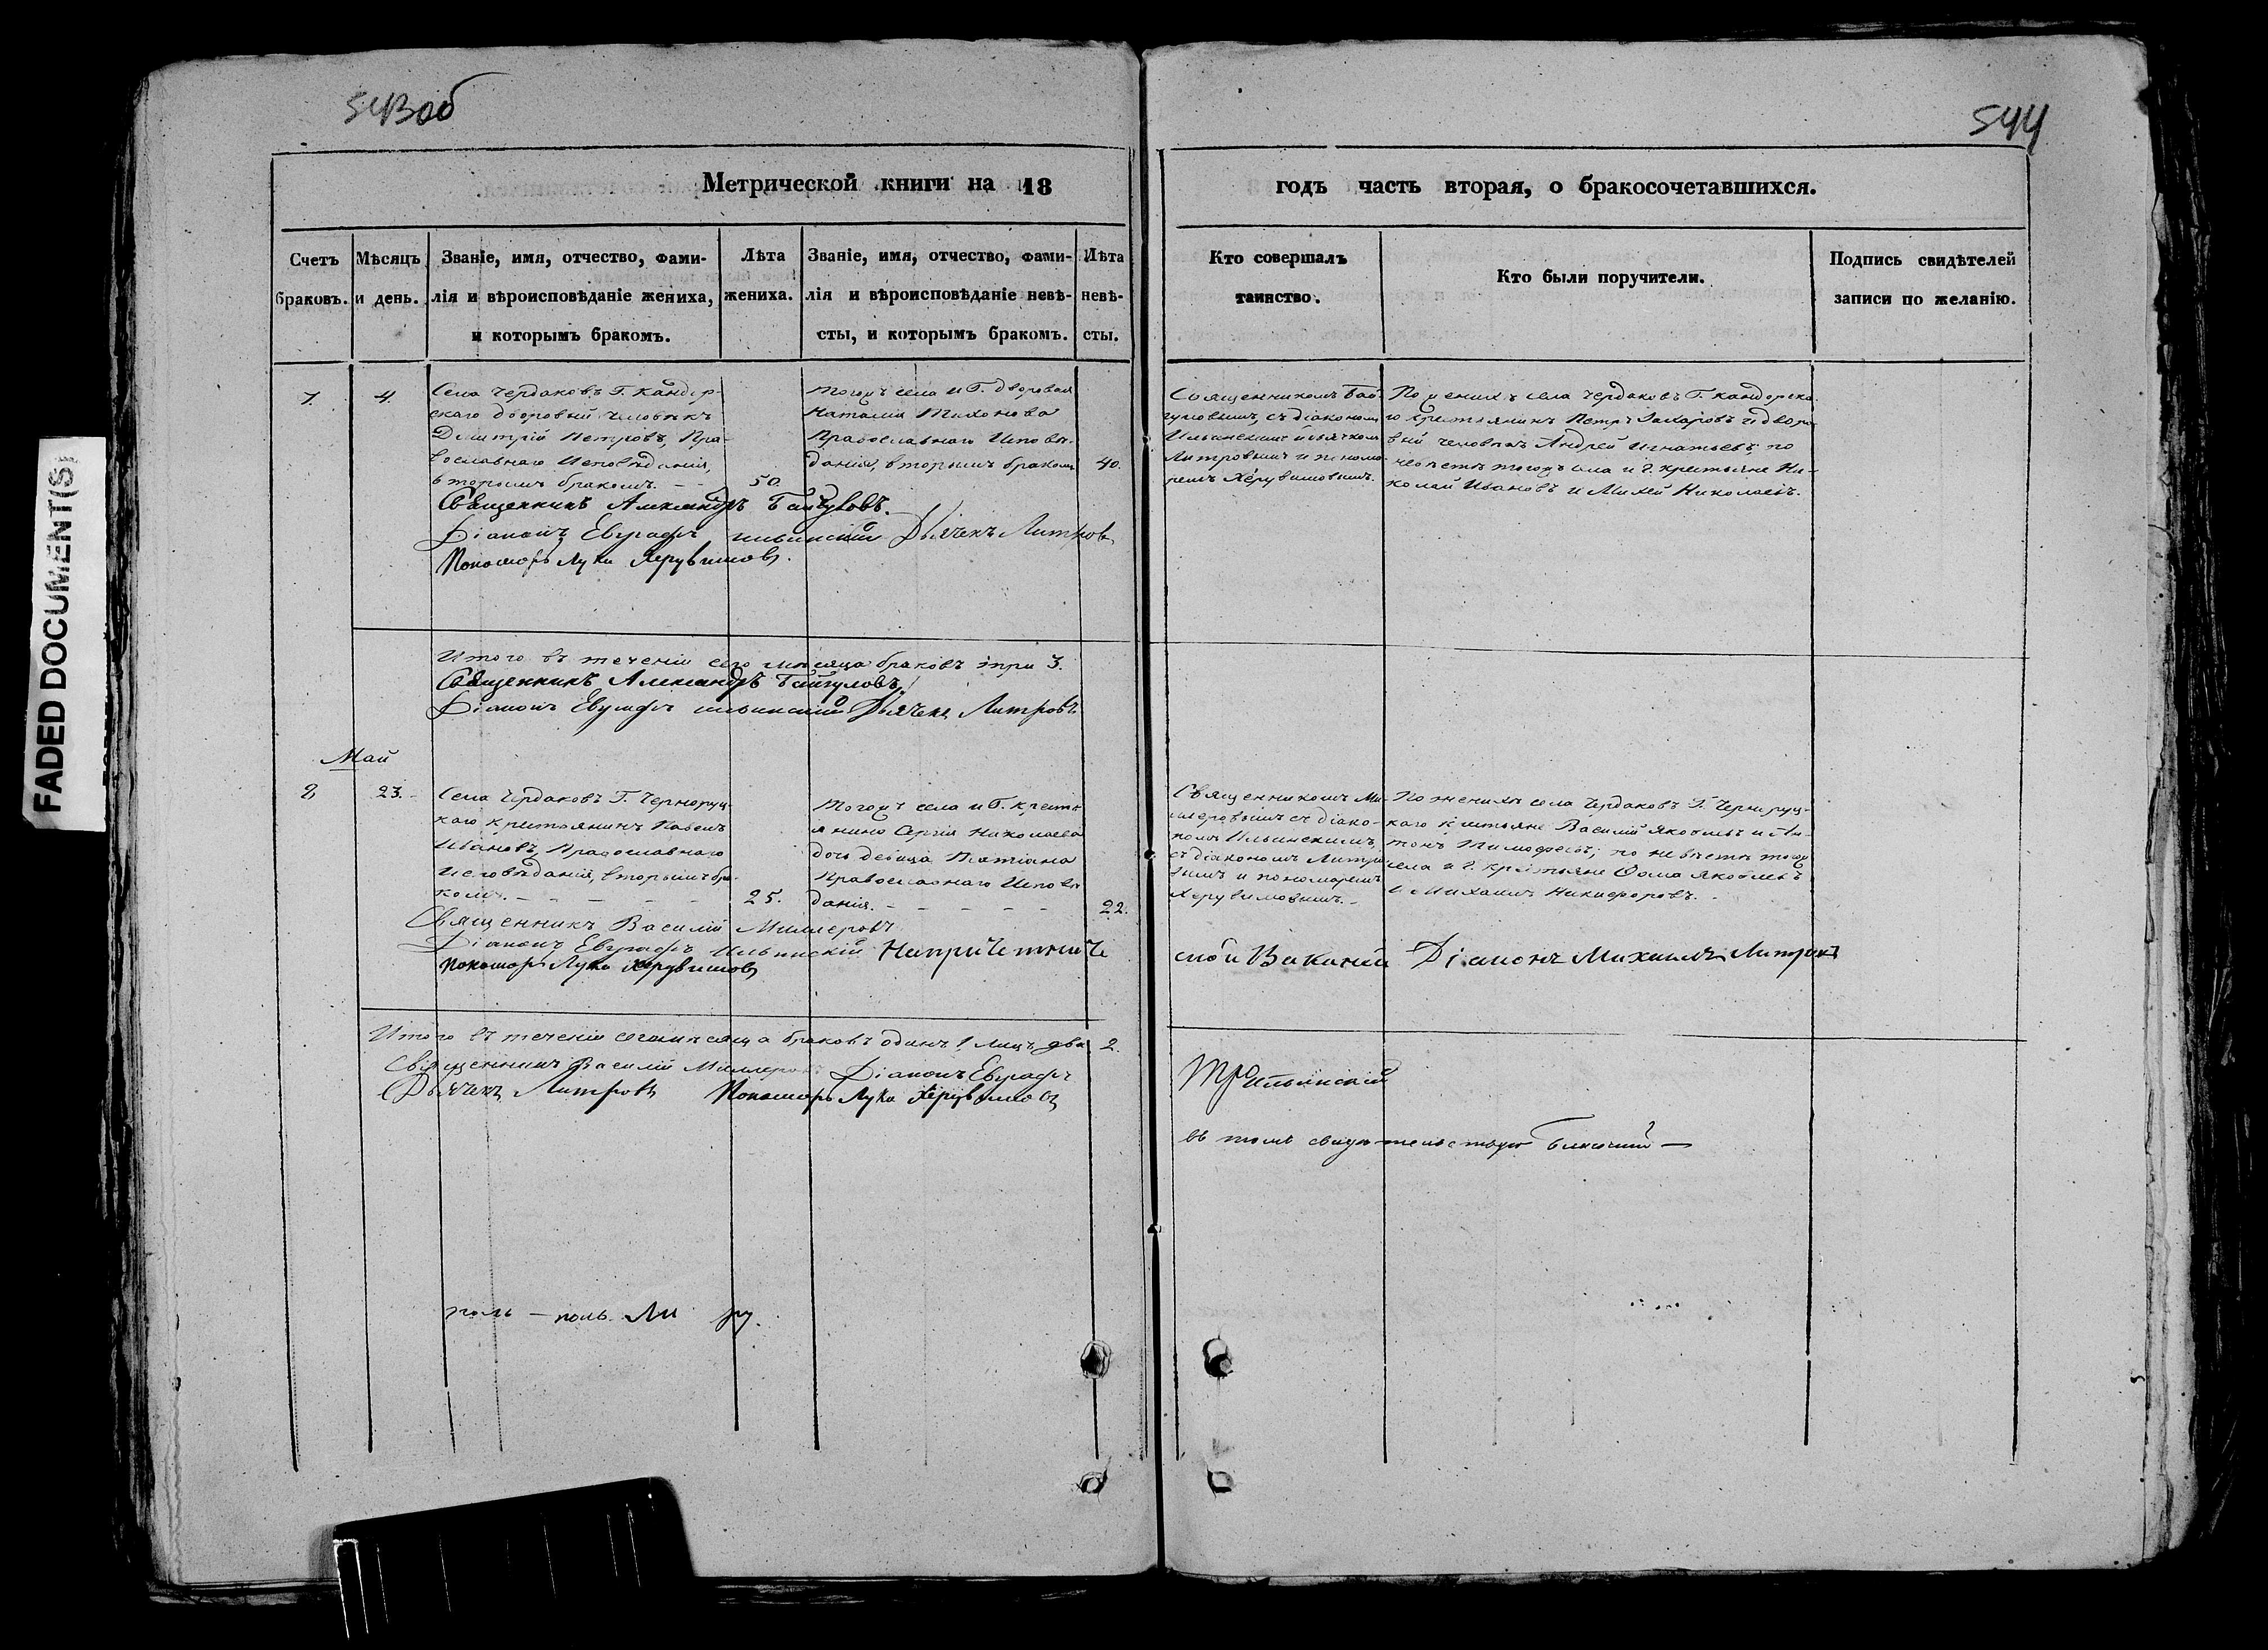 543об
544
Метрической книги на 18
годъ часть вторая, о бракосочетавшихся.
Счетъ браковъ.
Мѣсяцъ и день.
Званіе, имя, отчество, фами-
лія и вѣроисповѣданіе жениха,
и которымъ бракомъ.
Лѣта
жениха.
Званіе, имя, отчество, фами-
лія и вѣроисповѣданіе невѣ-
сты, и которымъ бракомъ.
Лѣта
невѣ-
сты.
Кто совершалъ
таинство.
Кто были поручители.
Подпись свидѣтелей
записи по желанію.
7.
4.
Села Чердаковъ Г. Кандор-
скаго дворовый человѣкъ
Дмитрій Петровъ, Пра-
вославнаго Исповѣданія,
вторымъ бракомъ. – –
50.
Тогожъ села и Г. дворовая
Наталия Тихонова
Православнаго Исповѣ-
данія, вторымъ бракомъ
40.
Священникомъ Бай-
гуловымъ, съ діакономъ
Ильинскимъ дьячкомъ
Литровымъ и понома-
ремъ Херувимовымъ.
По женихѣ села Чердаковъ Г. Кандорска-
го крестьянинъ Петръ Захаровъ и дворо-
вый человѣкъ Андрей Игнатьевъ; по
невѣстѣ тогожъ села и Г. крестьяне Ни-
колай Ивановъ и Михей Николаевъ.
Священникъ Александръ Байгуловъ.
Діаконъ Евграфъ Ильинскій Дьячекъ Литровъ
Пономарь Лука Херувимовъ.
Итого въ теченіи сего мѣсяца браковъ три 3.
Священникъ Александръ Байгуловъ.
Діаконъ Евграфъ Ильинскій Дьячекъ Литровъ
Май
8
23.
Села Чердаковъ Г. Черноруц-
каго крестьянинъ Павелъ
Ивановъ, Православнаго
Исповѣданія, вторымъ бра-
комъ. – – – – –
25.
Тогожъ села и Г. крестья-
янина Сергія Николаева
дочь девица Татіана
Православнаго Исповѣ-
данія. – – – – –
22.
Священникомъ Ми-
ллеровымъ съ діако-
номъ Ильинскимъ,
съ діакономъ Литро-
вымъ и пономаремъ
Херувимовымъ. –
По женихѣ села Чердаковъ Г. Черноруц-
каго крестьяне Василій Яковлевъ и Ан-
тонъ Тимофеевъ; по невѣстѣ тогожъ
села и Г. крестьяне Ѳома Яковлевъ
и Михаилъ Никифоровъ. –
Священникъ Василій Миллеровъ
Діаконъ Евграфъ Ильинскій Напричетниче
ской Вакансіи Діаконъ Михаилъ Литровъ
Пономарь Лука Херувимовъ
Итого въ теченіи сего мѣсяца браковъ одинъ 1, лицъ два 2.
Священникъ Василій Миллеровъ Діаконъ Евграфъ
Ильинскій
Дьячекъ Литровъ Пономарь Лука Херувимовъ
въ томъ свидѣтельствую